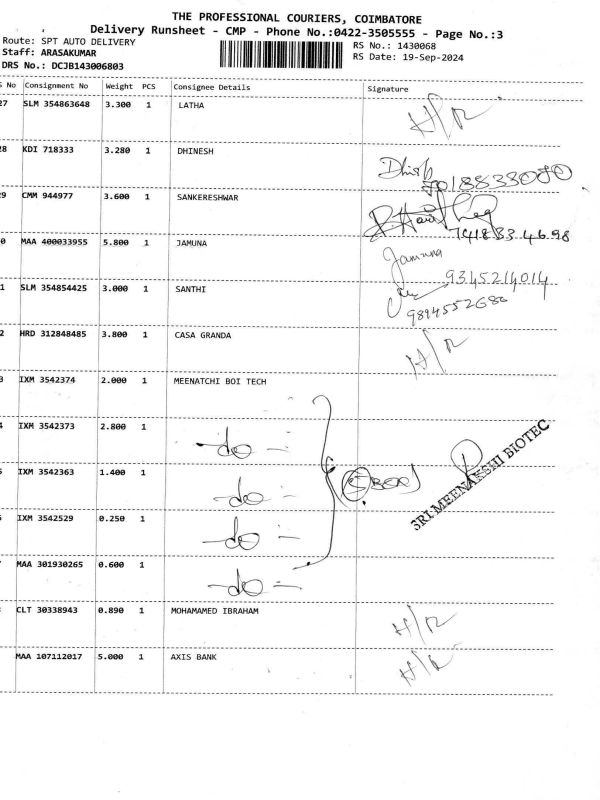 THE PROFESSIONAL COURIERS, COIMBATORE
Delivery Runsheet - CMP - Phone No.:0422-3505555 - Page No.:3
Route: SPT AUTO DELIVERY
Staff: ARASAKUMAR
DRS No.: DCJB143006803
RS No.: 1430068
RS Date: 19-Sep-2024
S No Consignment No Weight PCS Consignee Details Signature
27 SLM 354863648 3.300 1 LATHA H/R
28 KDI 718333 3.280 1 DHINESH
7018833080
29 CMM 944977 3.600 1 SANKERESHWAR
0 MAA 400033955 5.800 1 JAMUNA Jamuna
9345214014
1 SLM 354854425 3.000 1 SANTHI
9894552680
2 HRD 312848485 3.800 1 CASA GRANDA H/R
3 IXM 3542374 2.000 1 MEENATCHI BOI TECH
4 IXM 3542373 2.800 1 -do-
SRI MEENAKSHI BIOTEC
5 IXM 3542363 1.400 1 -do-
IXM 3542529 0.250 1 -do-
MAA 301930265 0.600 1 -do-
CLT 30338943 0.890 1 MOHAMAMED IBRAHAM H/R
MAA 107112017 5.000 1 AXIS BANK H/R